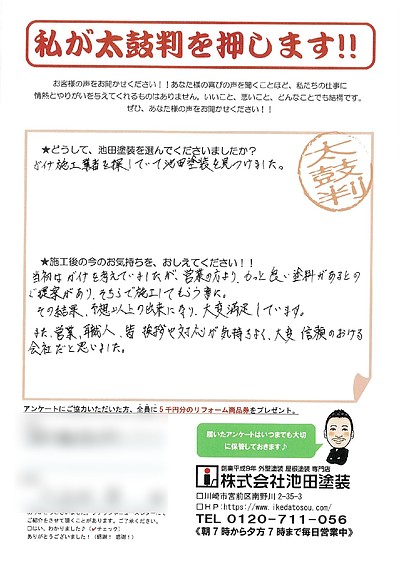 私が太鼓判を押します!!
お客様の声をお聞かせください!!あなた様の喜びの声を聞くことほど、私たちの仕事に
情熱とやりがいを与えてくれるものはありません。いいこと、悪いこと、どんなことでも結構です。
ぜひ、あなた様の声をお聞かせください!!
太鼓判
★どうして、池田塗装を選んでくださいましたか?
ガイナ施工業者を探していて池田塗装を見つけました。
★施工後の今のお気持ちを、おしえてください!!
当初はガイナを考えていましたが、営業の方より、もっと良い塗料があるとの
ご提案があり、そちらで施工してもらう事に。
その結果、予想以上の出来になり、大変満足しています。
また、営業、職人、皆 挨拶や対応が気持ちよく、大変 信頼のおける
会社だと思いました。
アンケートにご協力いただいた方、全員に5千円分のリフォーム商品券をプレゼント。
頂いたアンケートはいつまでも大切
に保管しておきます♪
創業平成8年 外壁塗装 屋根塗装 専門店
株式会社池田塗装
口川崎市宮前区南野川2-35-3
口HP:https://www.ikedatosou.com/
TEL 0120-711-056
《朝7時から夕方7時まで毎日営業中》
ご紹介をさせて頂くことがあります。ご了承ください。
口はい、わかりました♪(✔チェック)
ありがとうございます!(感謝!感謝!)